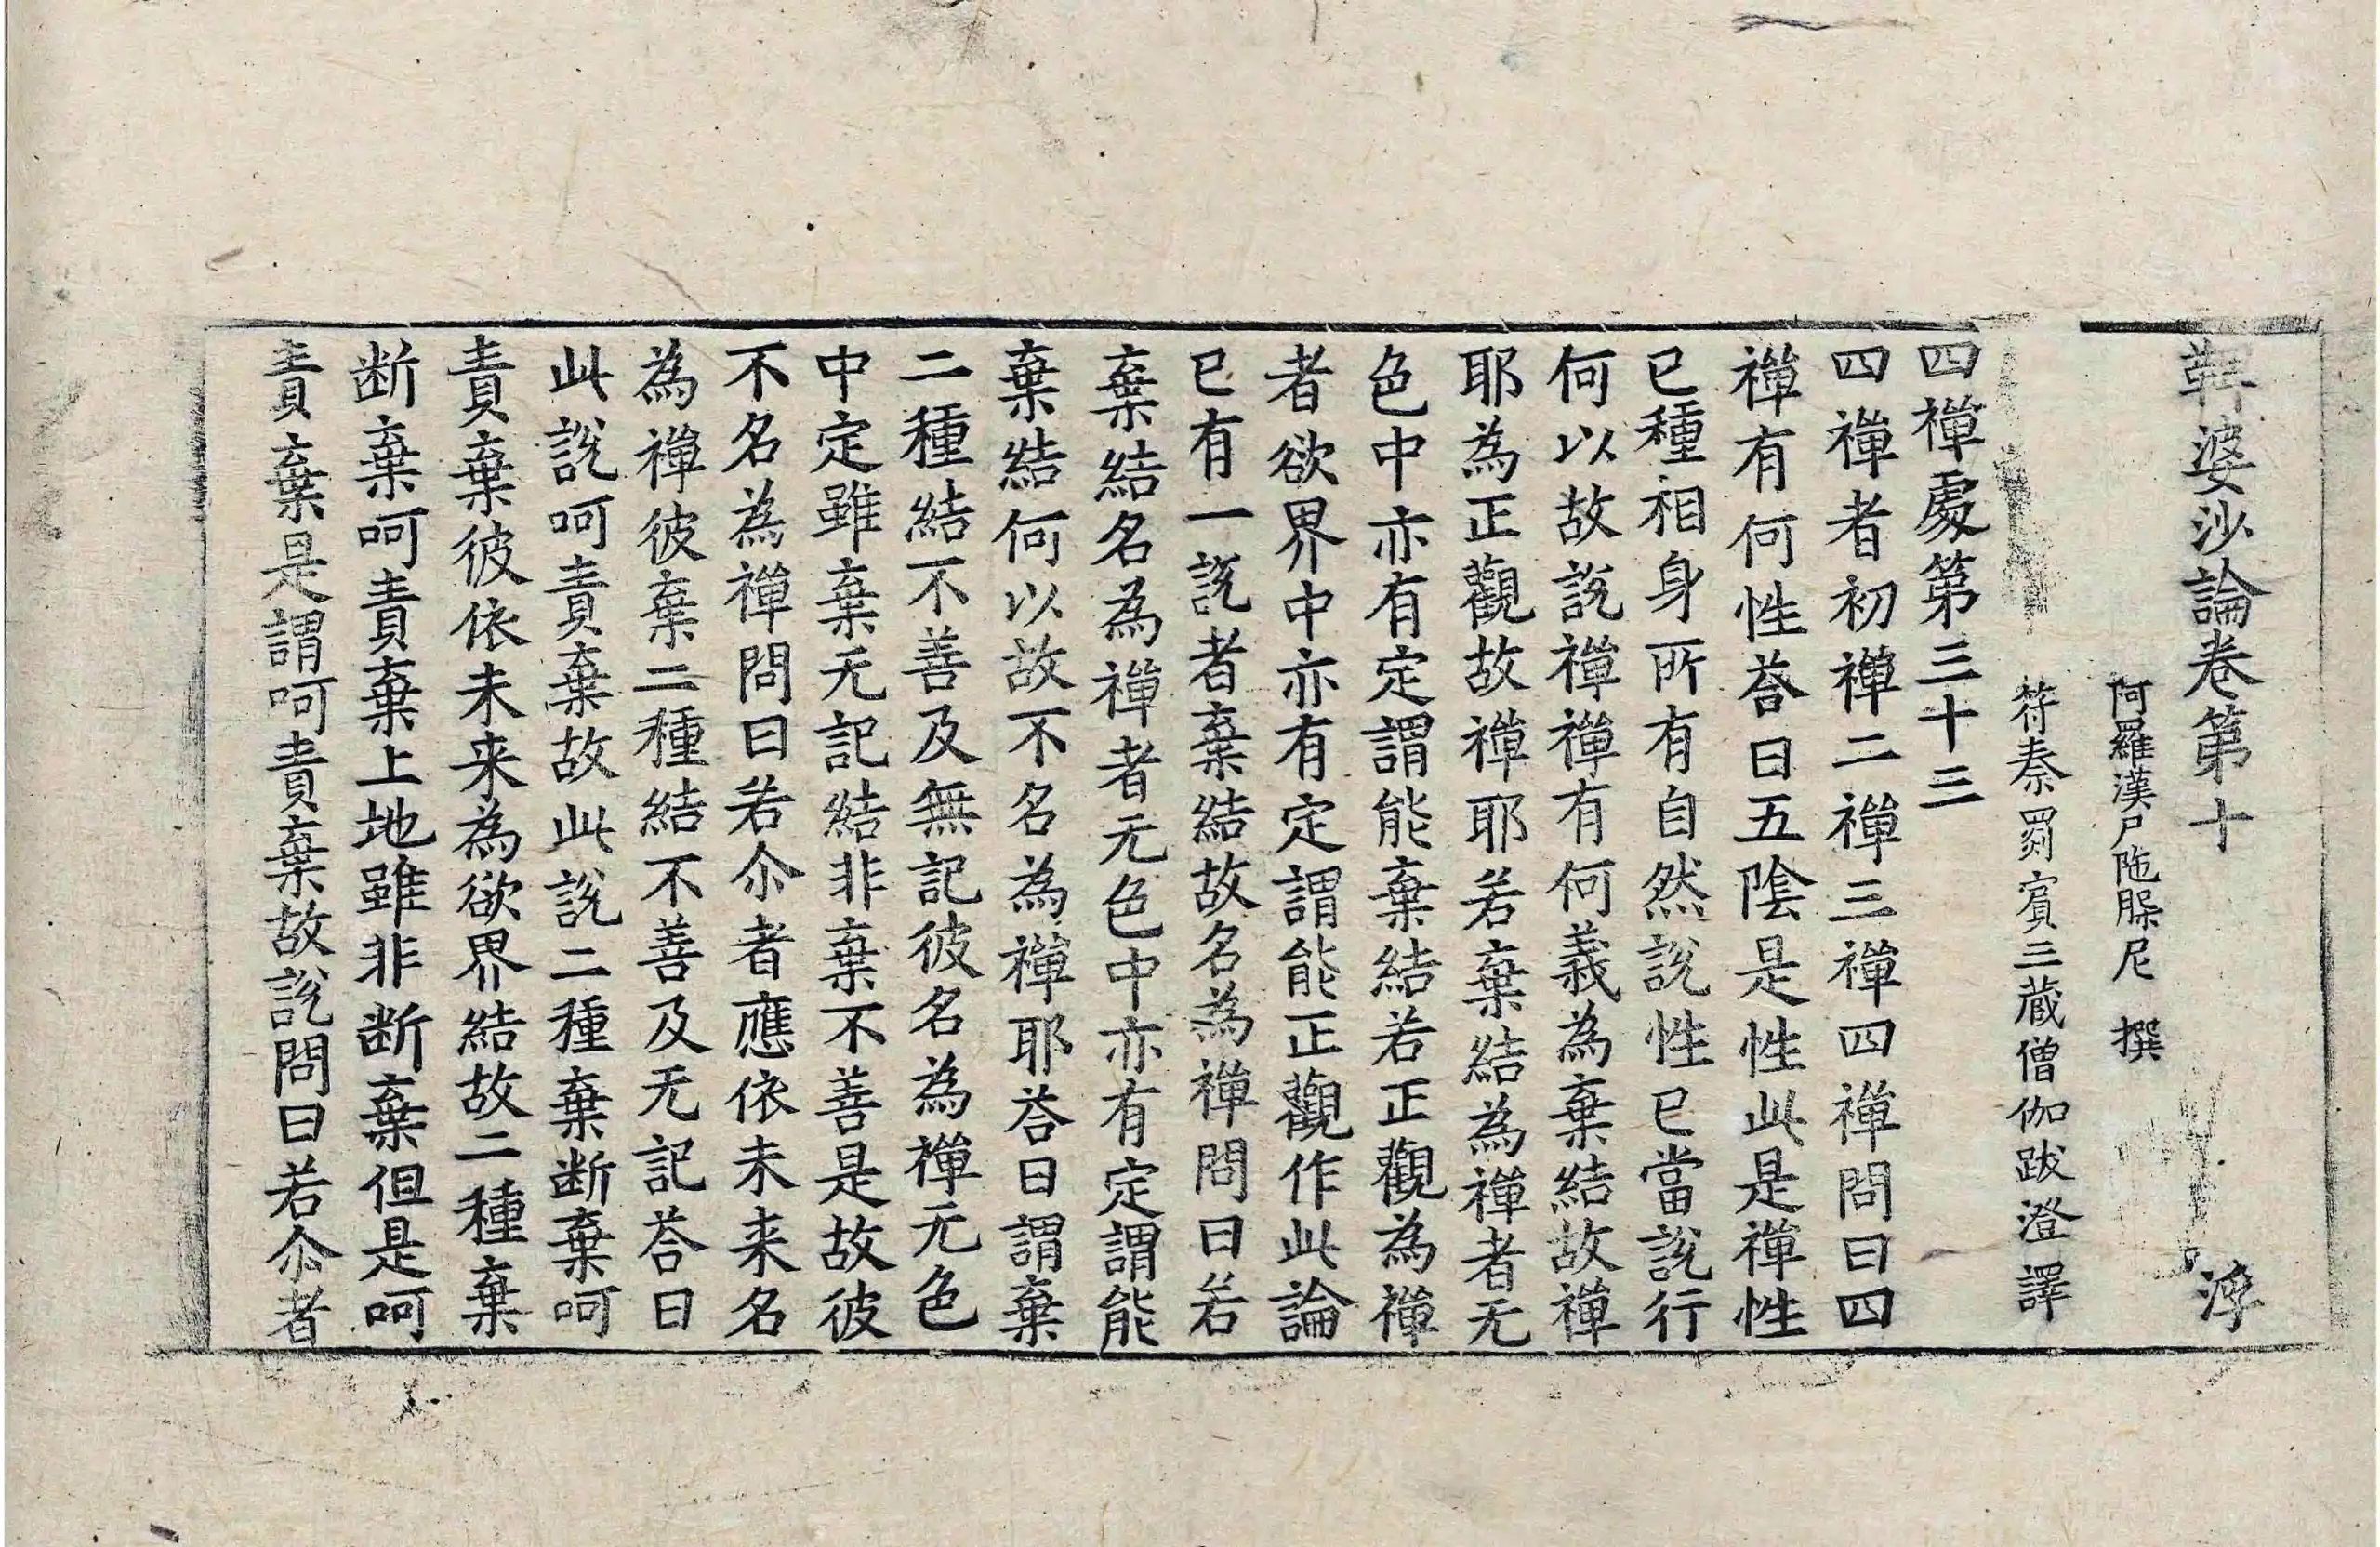 鞞婆沙論卷第十 浮
阿羅漢尸陁槃尼 撰
符秦罽賓三藏僧伽跋澄譯
四禪處第三十三
四禪者初禪二禪三禪四禪問曰四
禪有何性荅曰五陰是性此是禪性
已種相身所有自然說性已當說行
何以故說禪禪有何義為棄結故禪
耶為正觀故禪耶若棄結為禪者无
色中亦有定謂能棄結若正觀為禪
者欲界中亦有定謂能正觀作此論
已有一說者棄結故名為禪問曰若
棄結名為禪者无色中亦有定謂能
棄結何以故不名為禪耶荅曰謂棄
二種結不善及無記彼名為禪无色
中定雖棄无記結非棄不善是故彼
不名為禪問曰若尒者應依未来名
為禪彼棄二種結不善及无記荅曰
此說呵責棄故此說二種棄断棄呵
責棄彼依未来為欲界結故二種棄
断棄呵責棄上地雖非断棄但是呵
責棄是謂呵責棄故說問曰若尒者